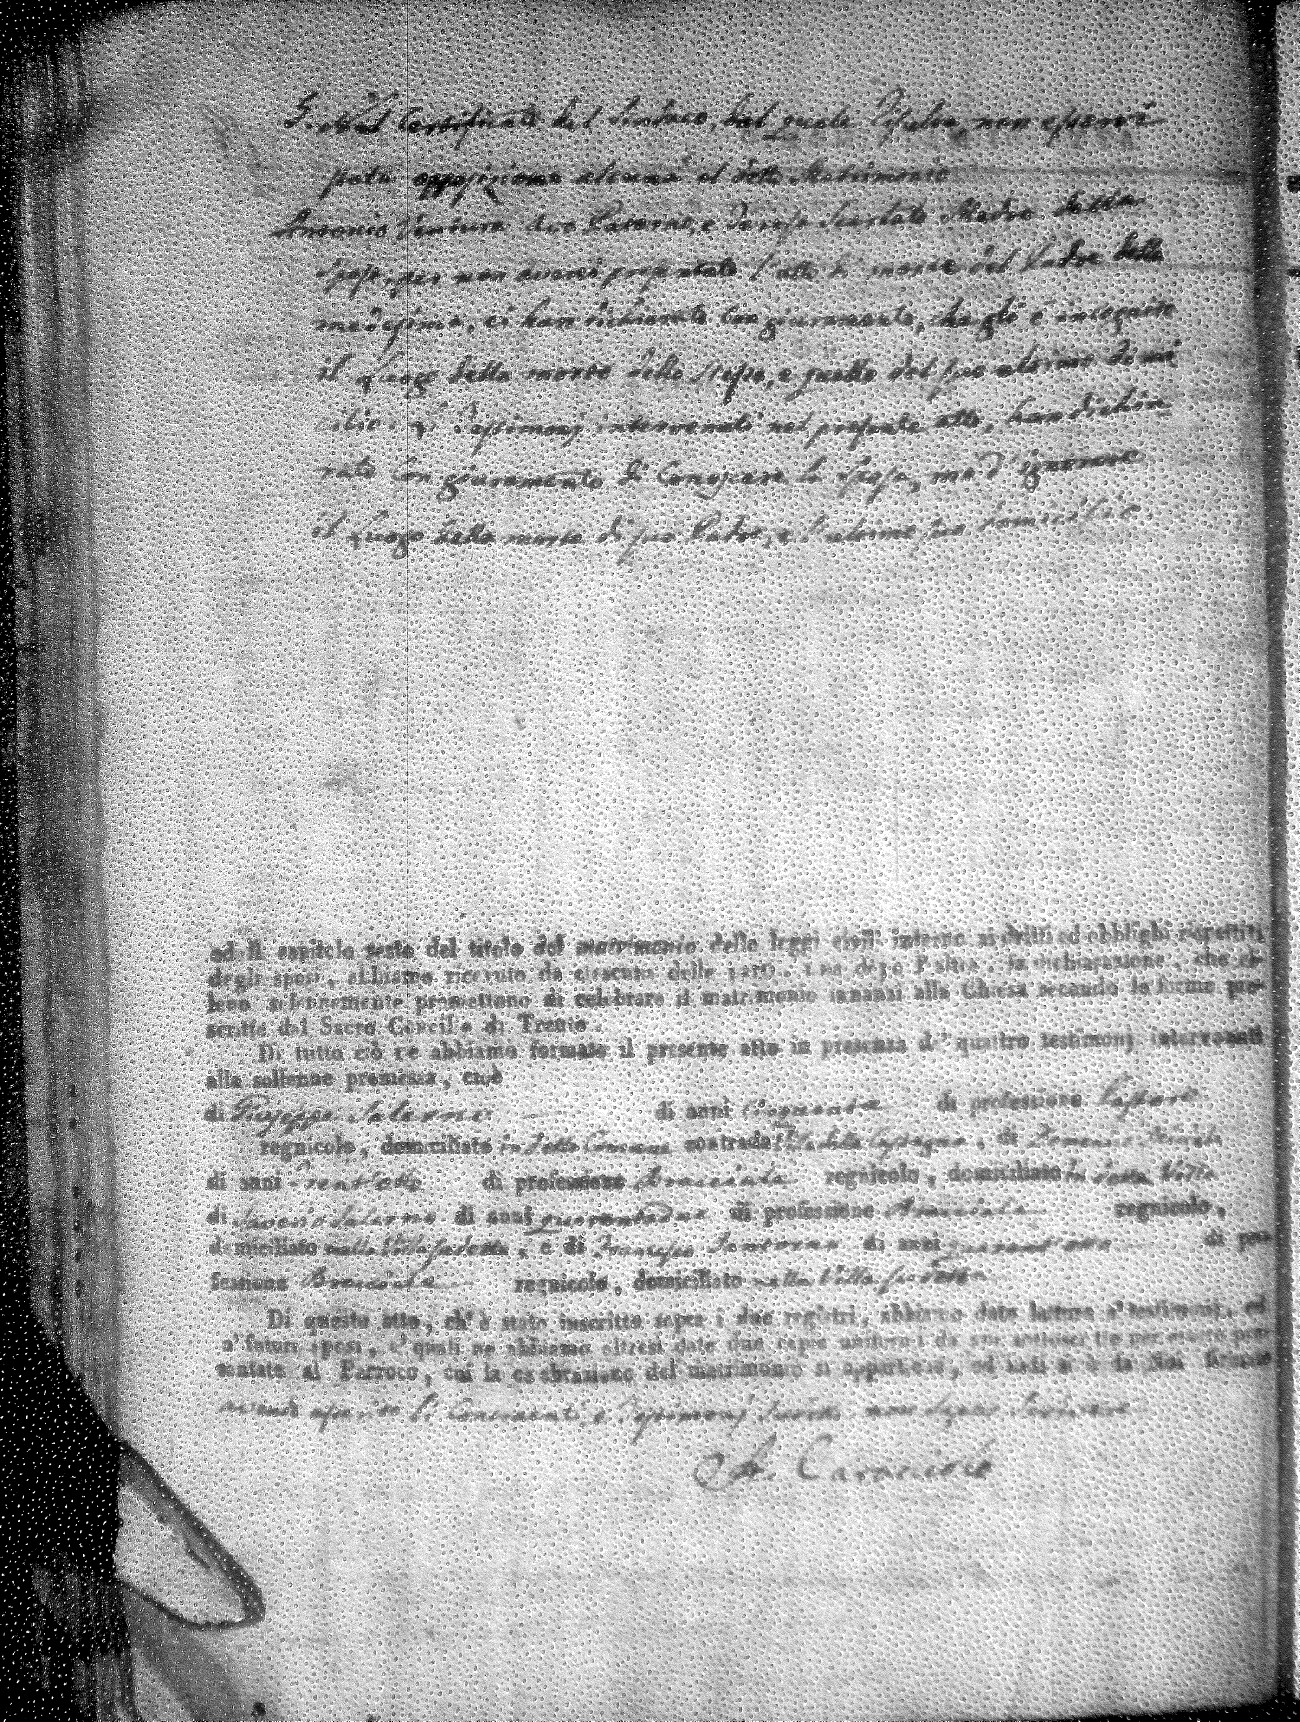 5. Nel Certificato del Sindaco, dal quale risulta, non esservi
fatta opposizione alcuna al detto Matrimonio
Antonio Ventura Avo Paterno, e Teresa Madre della
Sposa, per non aversi presentato l'atto di morte del Padre della
medesima, ci han dichiarato con giuramento, che gli è incognito
il Luogo della morte dello stesso, e quello del suo ultimo domi
cilio. I Testimonj intervenuti nel presente atto, han dichia
rato con giuramento di conoscere la Sposa, ma d'ignorare
il Luogo della morte di suo Padre, e l'ultimo suo domicilio
ed il capitolo sesto del titolo del matrimonio delle leggi civili intorno ai dritti ed obblighi rispettivi
degli sposi, abbiamo ricevuto da ciascuna delle parti, una dopo l'altra, la dichiarazione, che el-
leno solennemente promettono di celebrare il matrimonio innanzi alla Chiesa secondo le forme pre-
scritte dal Sacro Concilio di Trento.
Di tutto ciò ne abbiamo formato il presente atto in presenza de' quattro testimonj intervenuti
alla sollenne promessa, cioè
di Giuseppe Salerno di anni Cinquanta di professione
regnicolo, domiciliato in detto Comune contrada, di Domenico
di anni Trent'otto di professione Bracciale regnicolo, domiciliato in detta Villa
di Saverio Salerno di anni quarantadue di professione Bracciale regnicolo,
domiciliato nella Villa sudetta, e di Francesco di anni di pro-
fessione Bracciale regnicolo, domiciliato nella Villa sudetta
Di questo atto, ch'è stato inscritto sopra i due registri, abbiamo dato lettura a' testimonj, ed
a' futuri sposi, a' quali ne abbiamo altresì date due copie uniformi da noi sottoscritte per essere pre-
sentate al Parroco, cui la celebrazione del matrimonio si appartiene, ed indi si è da Noi firmato
avendo asserito li Contraenti e Testimonj sudetti non saper scrivere
A. Caracciolo